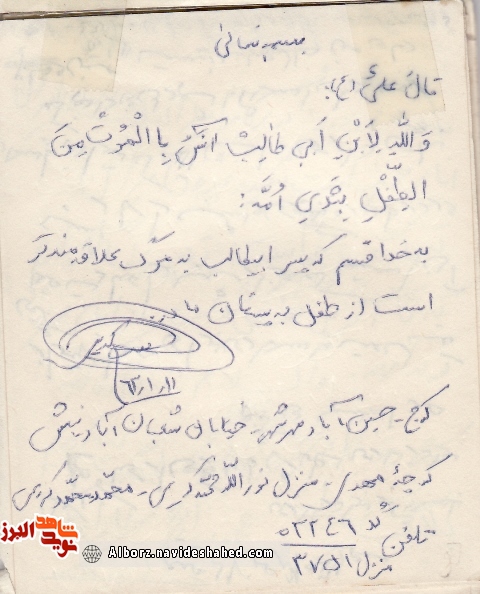 بسمه تعالی
قال علی (ع):
وَاللهِ لِاَبْنِ اَبی طالِبْ انَسُ بِا الْمُوتْ مِنَ
الطِّفْلِ بِثَدیِ اُمَّه:
به خدا قسم که پسر ابیطالب به مرگ علاقه مندتر
است از طفل به پستان مادر
۶۳/۱/۱۱
کرج - حسین آباد مهرشهر - خیابان شعبان آباد نبش
کوچهٔ مهدی - منزل نورالله محمد کریمی - محمد محمد کریمی
تلفن کد ۰۲۲۴۶
منزل الی ۳۷
شاهد
نوید
البرز
Alborz.navideshahed.com